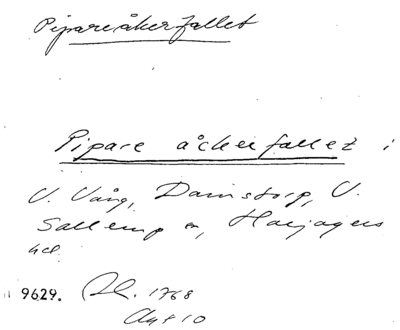 Pipareåkerfallet
Pipare åckerfallet i
V. Vång, Damstorp, V.
Sallerup sn, Harjagers
hd.
9629. 1768
Akt 10